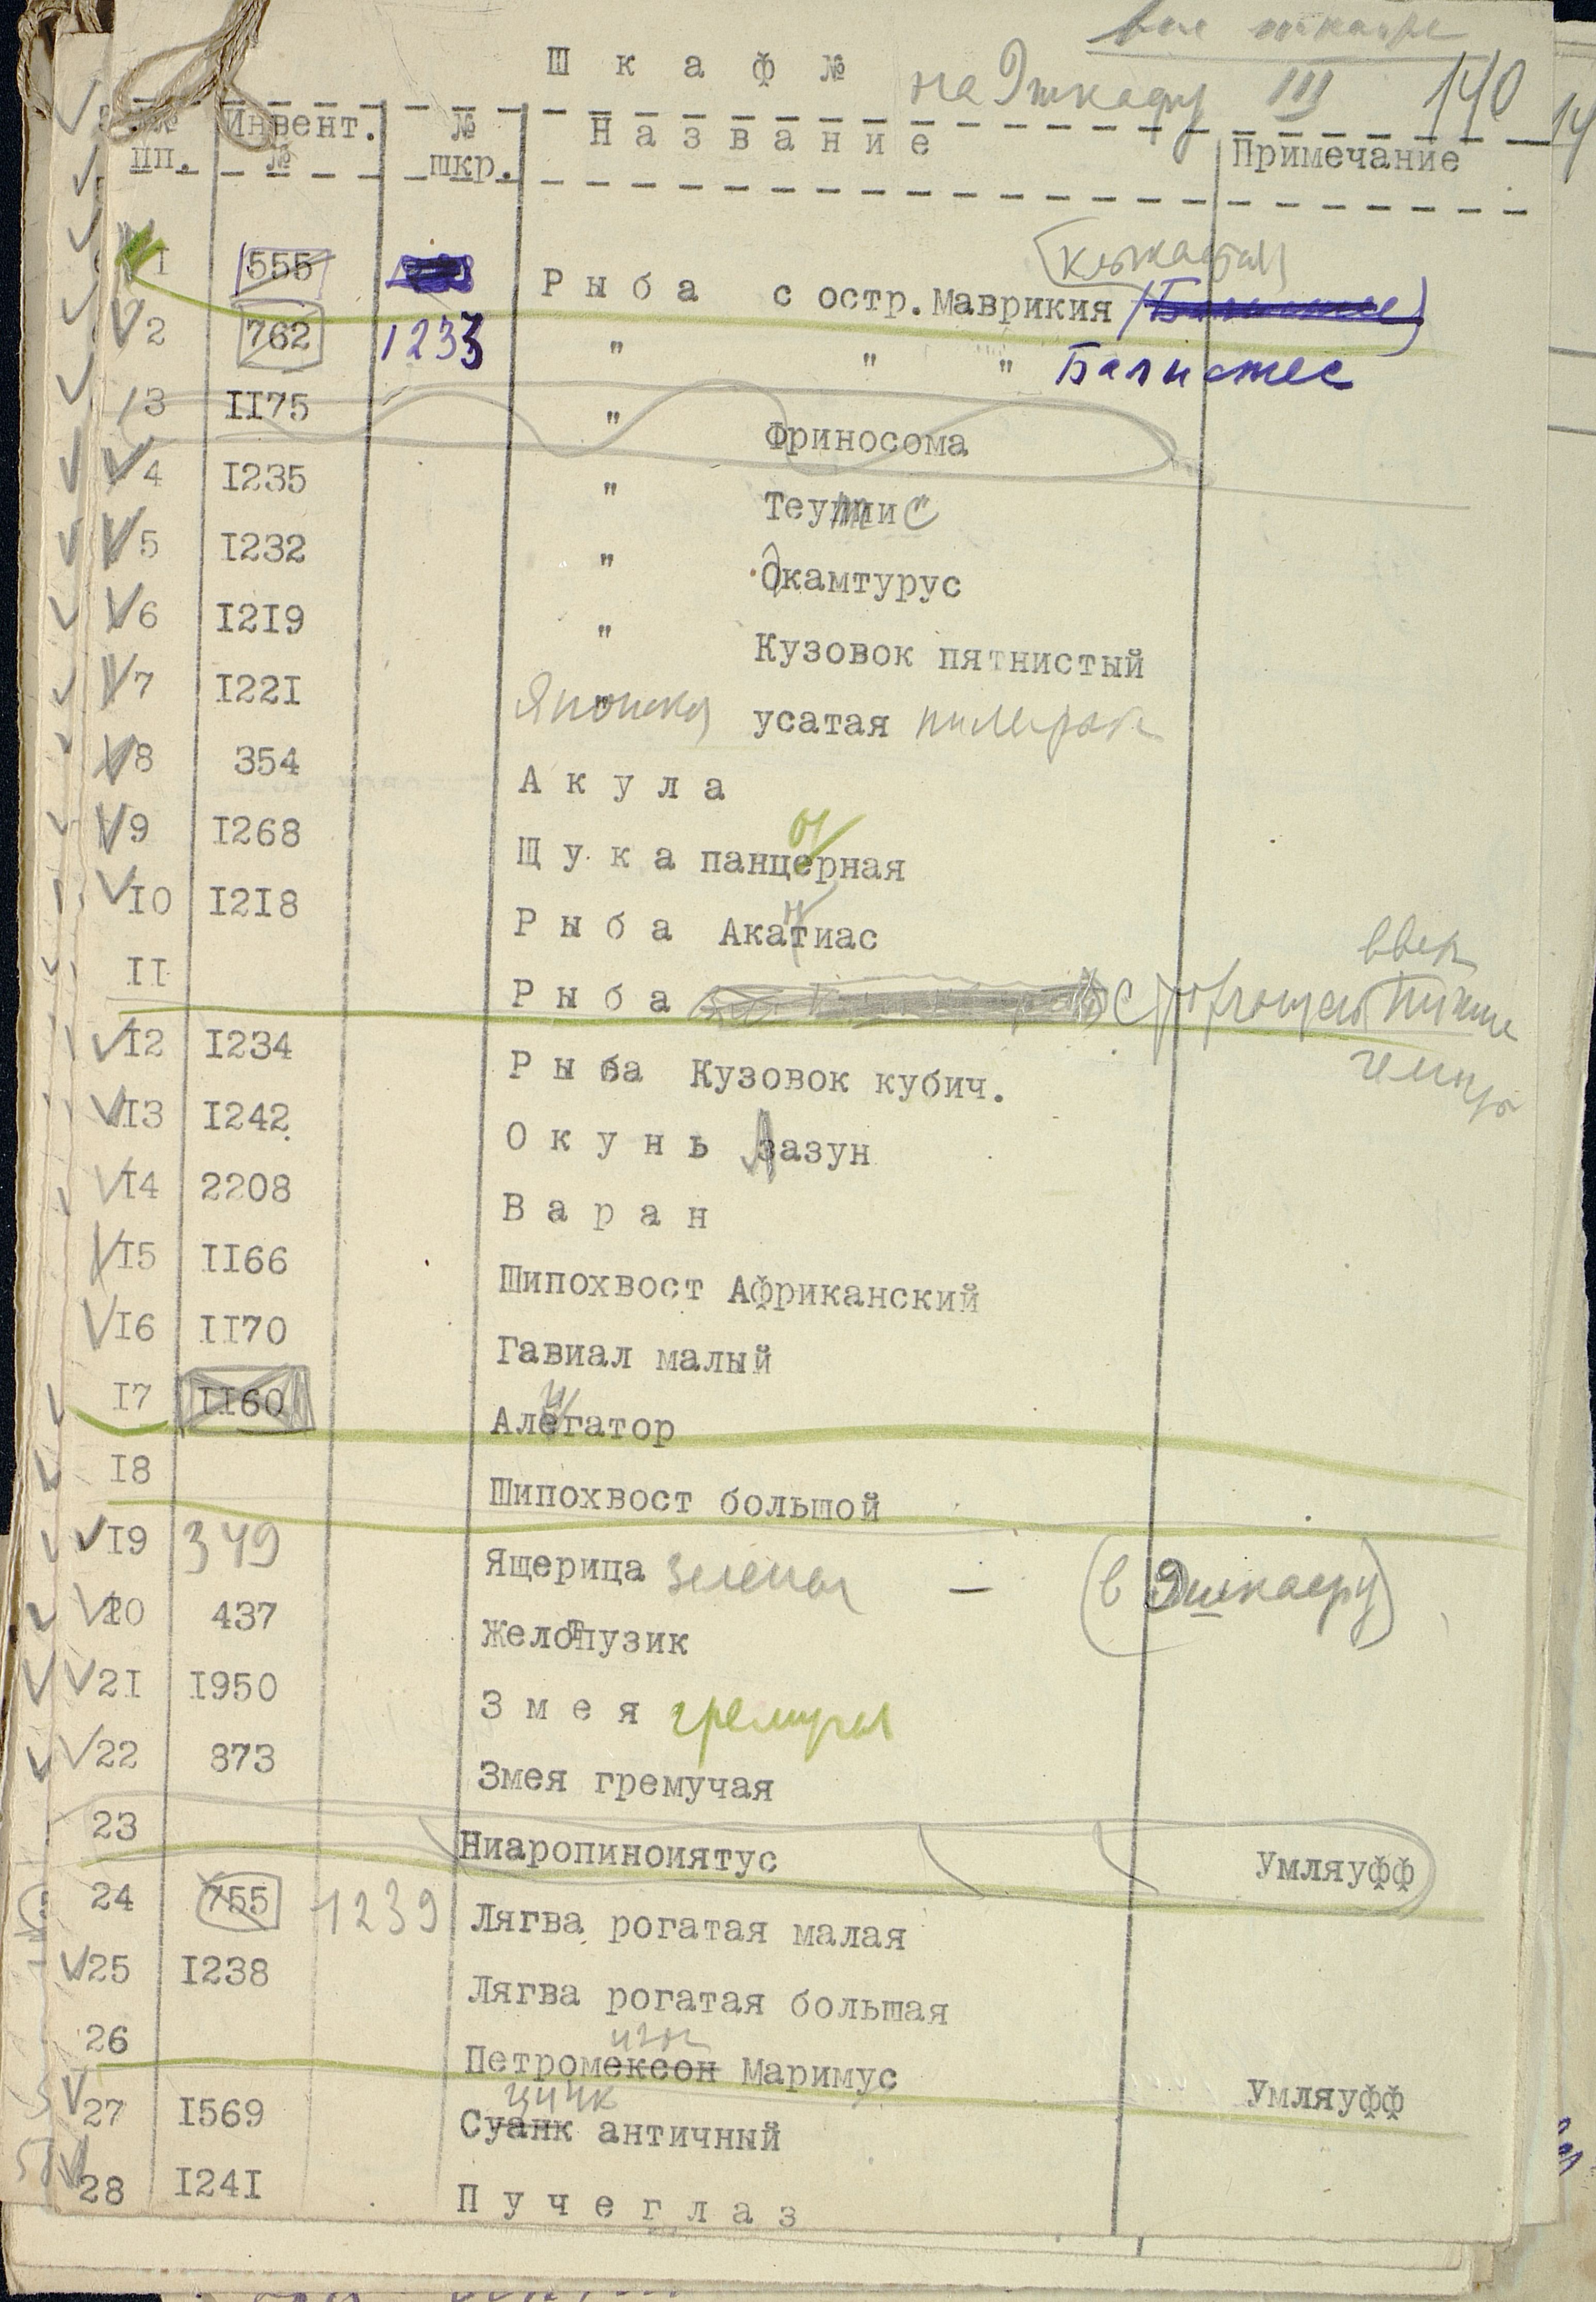 все шкафы
Шкаф № на 9 шкафу III 140
№№ пп. Инвент. № № шкр. Название Примечание
1 555 Рыба с остр. Маврикия
2 762 1233 " " " Балистес
3 II75 " Фриносома
4 I235 " Теутис
5 I232 " Окамтурус
6 I2I9 " Кузовок пятнистый
7 I22I Японская усатая пилерак
8 354 Акула
9 I268 Щука панцерная
I0 I2I8 Рыба Акатиас
II Рыба
I2 I234 Рыба Кузовок кубич.
I3 I242 Окунь Лазун
I4 2208 Варан
I5 II66 Шипохвост Африканский
I6 II70 Гавиал малый
I7 II60 Алегатор
I8 Шипохвост большой
I9 349 Ящерица зеленая — (в 9 шкафу)
20 437 Желотпузик
2I I950 Змея гремучая
22 873 Змея гремучая
23 Ниаропиноиятус Умляуфф
24 755 1239 Лягва рогатая малая
25 I238 Лягва рогатая большая
26 Петромексон Маримус Умляуфф
27 I569 Суанк античный
28 I24I Пучеглаз